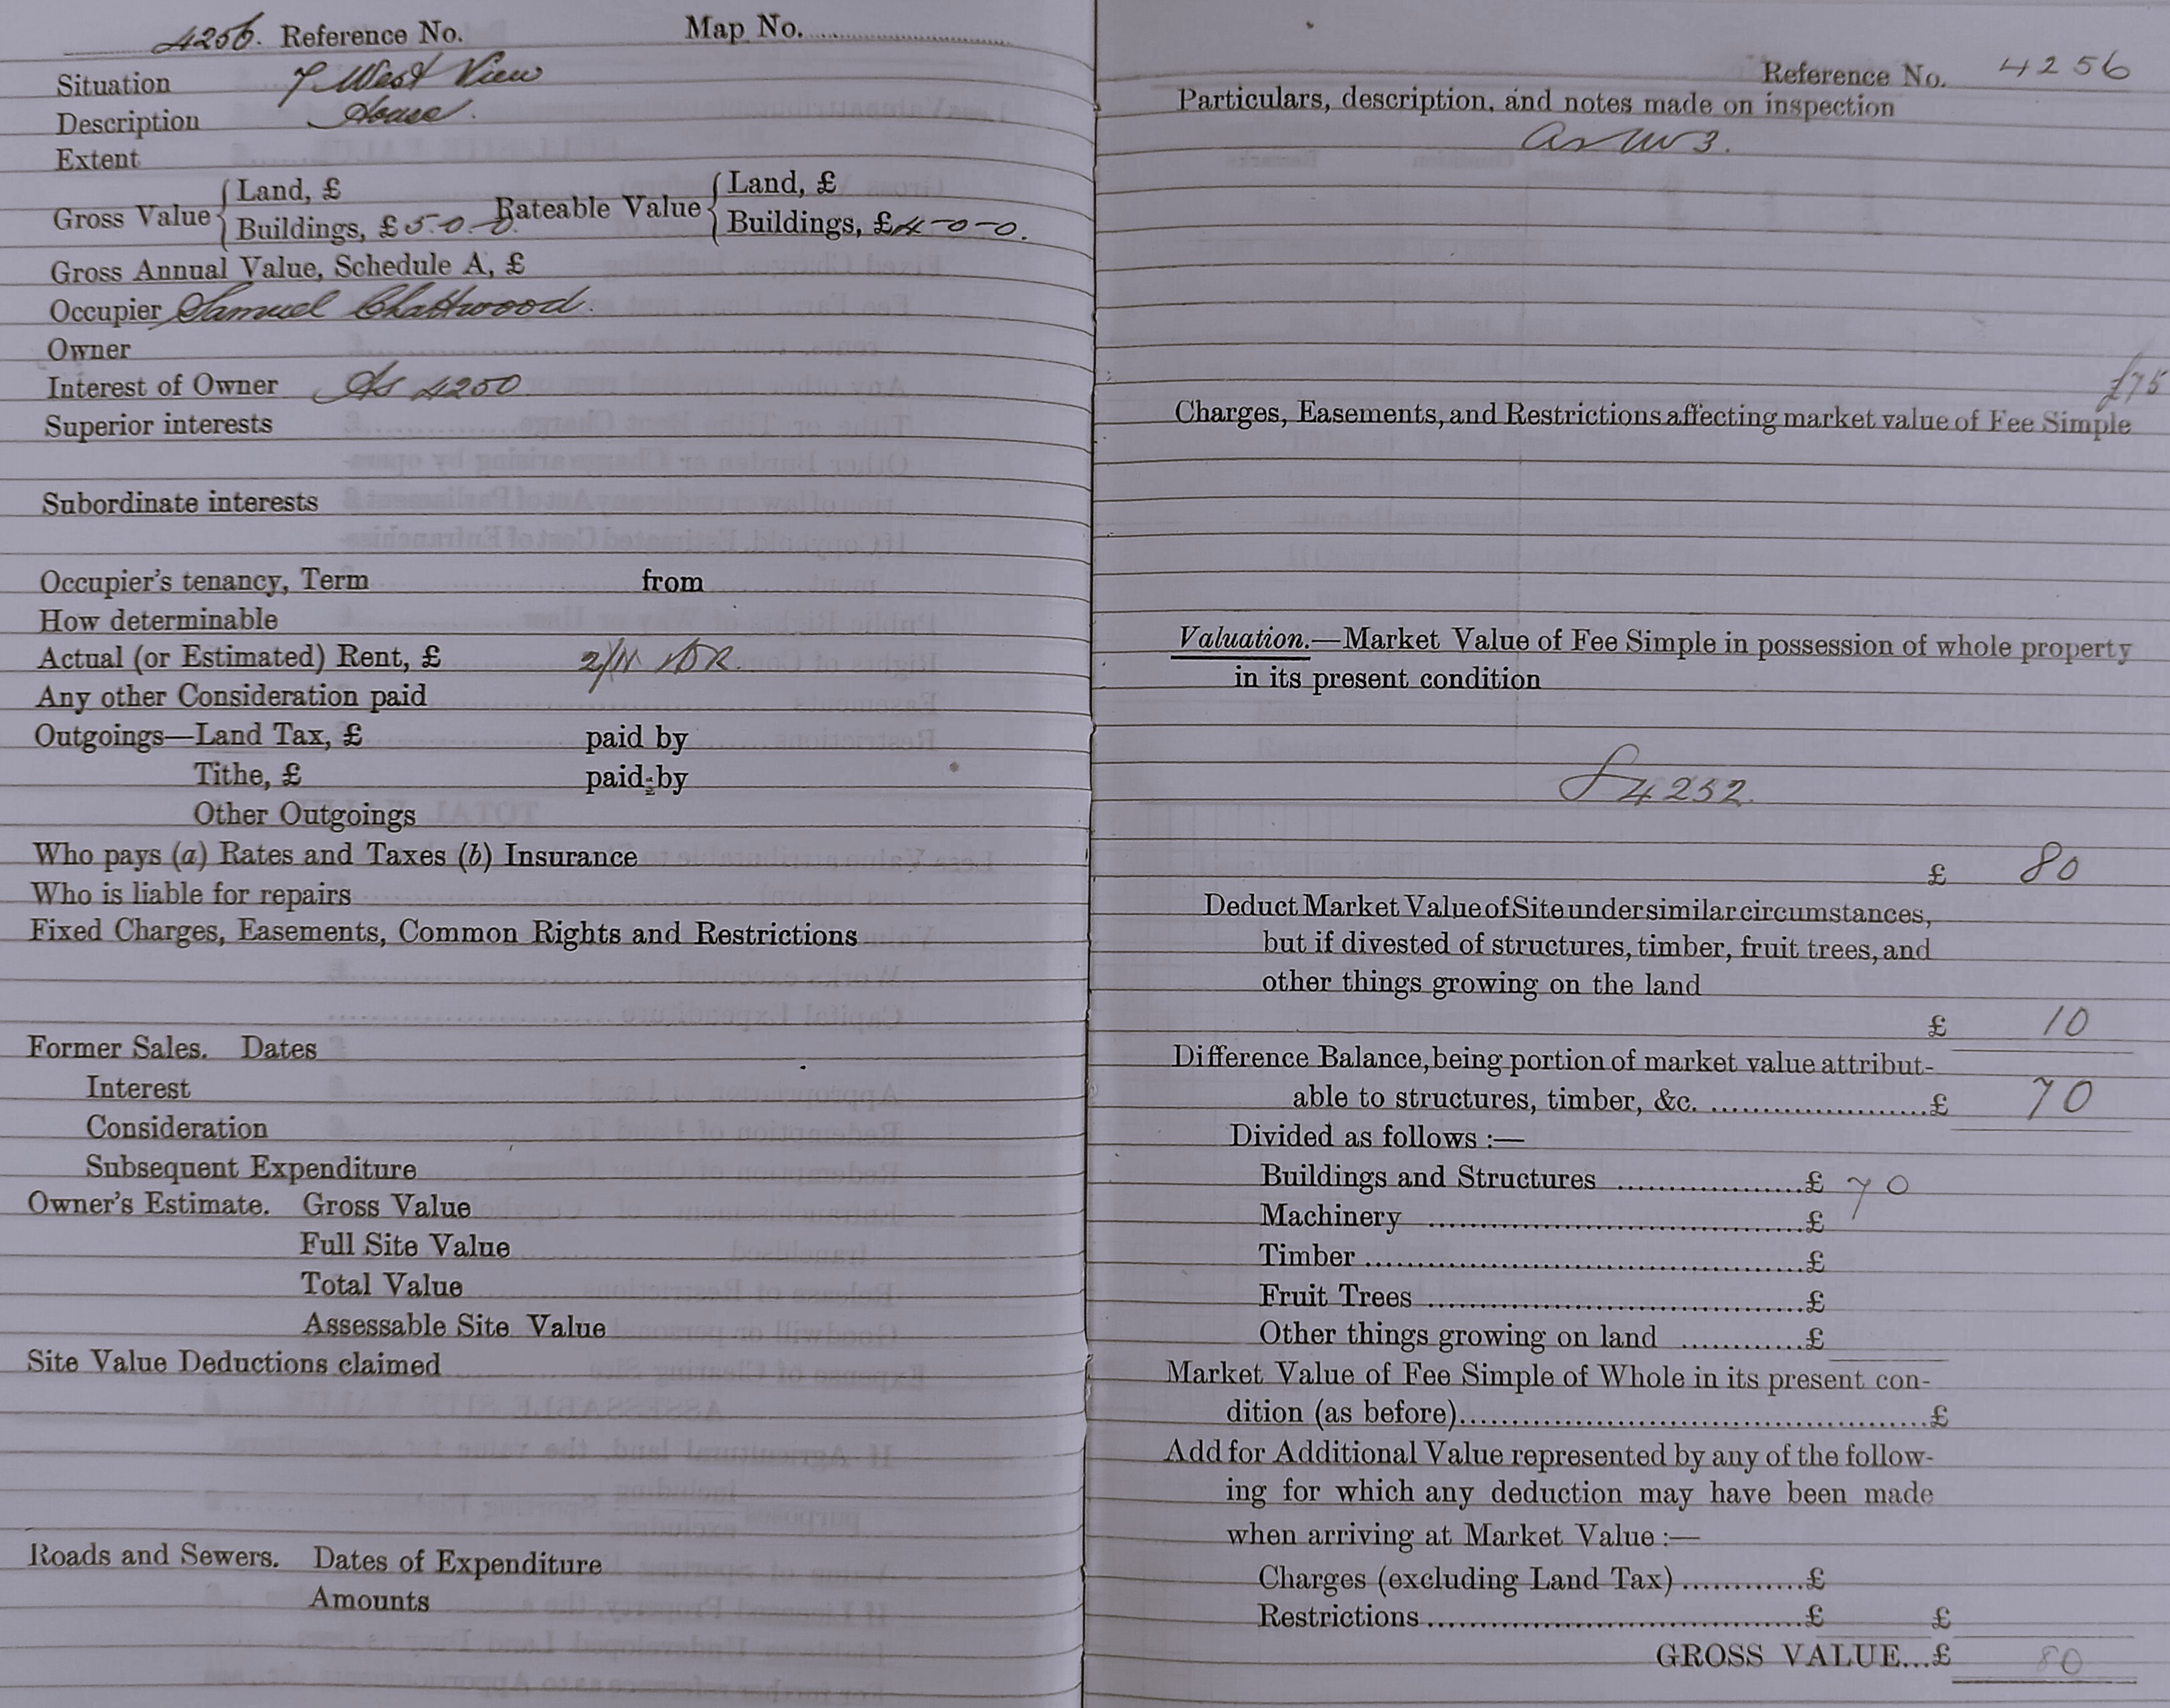 4256. Reference No. Map No.
Situation 7 West View
Description House.
Extent
Gross Value { Land, £
Buildings, £ 5-0-0 Rateable Value { Land, £
Buildings, £ 4-0-0.
Gross Annual Value, Schedule A, £
Occupier Samuel Chattwood.
Owner
Interest of Owner As 4250
Superior interests
Subordinate interests
Occupier's tenancy, Term from
How determinable
Actual (or Estimated) Rent, £ 2/11
Any other Consideration paid
Outgoings—Land Tax, £ paid by
Tithe, £ paid by
Other Outgoings
Who pays (a) Rates and Taxes (b) Insurance
Who is liable for repairs
Fixed Charges, Easements, Common Rights and Restrictions
Former Sales. Dates
Interest
Consideration
Subsequent Expenditure
Owner's Estimate. Gross Value
Full Site Value
Total Value
Assessable Site Value
Site Value Deductions claimed
Roads and Sewers. Dates of Expenditure
Amounts
Reference No. 4256
Particulars, description, and notes made on inspection
as 3.
£75
Charges, Easements, and Restrictions affecting market value of Fee Simple
Valuation.—Market Value of Fee Simple in possession of whole property
in its present condition
4252.
£ 80
Deduct Market Value of Site under similar circumstances,
but if divested of structures, timber, fruit trees, and
other things growing on the land
£ 10
Difference Balance, being portion of market value attribut-
able to structures, timber, &c. £ 70
Divided as follows :—
Buildings and Structures £ 70
Machinery £
Timber £
Fruit Trees £
Other things growing on land £
Market Value of Fee Simple of Whole in its present con-
dition (as before) £
Add for Additional Value represented by any of the follow-
ing for which any deduction may have been made
when arriving at Market Value :—
Charges (excluding Land Tax) £
Restrictions £ £
GROSS VALUE...£ 80